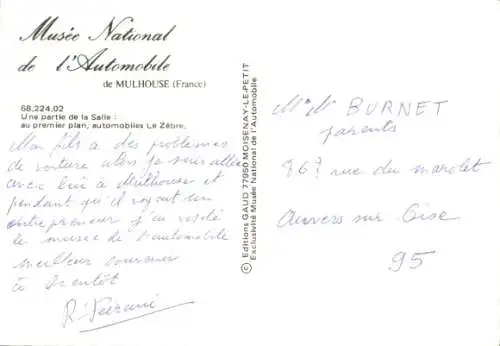 Musée National
de l'Automobile
de MULHOUSE (France)
68.224.02
Une partie de la Salle :
au premier plan, automobiles Le Zèbre,
Mon fils a des problèmes
de voiture alors je suis allée
avec lui à Mulhouse et
pendant qu'il voyait son
entrepreneur j'ai visité
le musée de l'automobile
meilleur souvenir
à bientôt
© Editions GAUD 77950 MOISENAY-LE-PETIT
Exclusivité Musée National de l'Automobile
Mr M BURNET
parents
rue du marolet
Auvers sur Oise
95